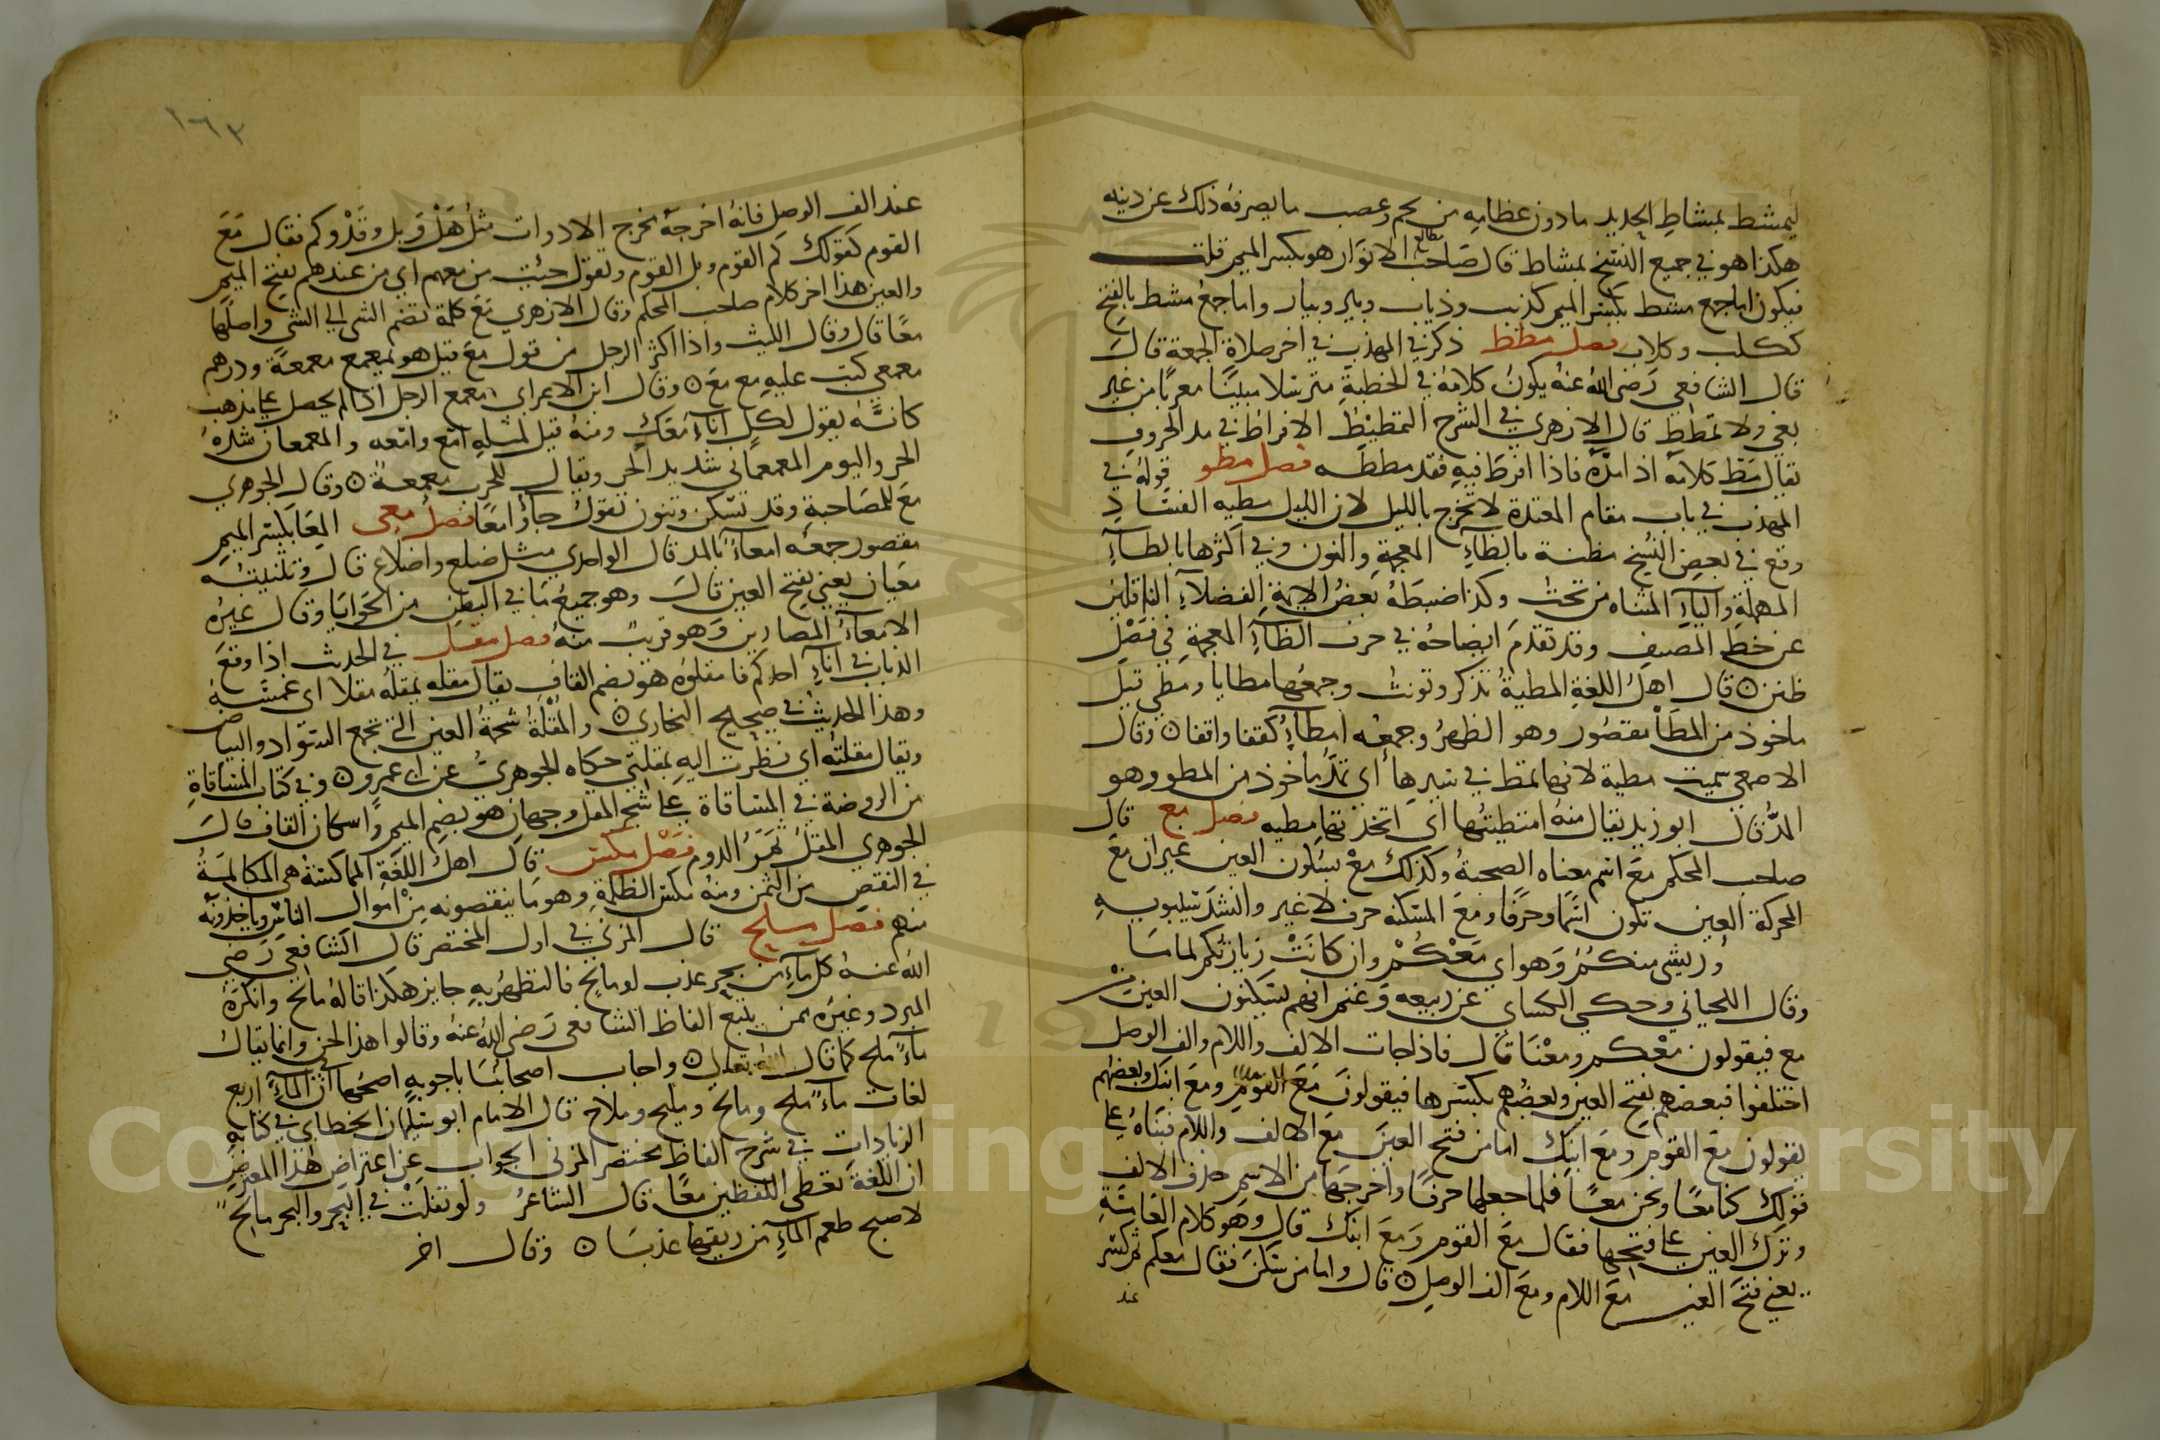 ليمشط بمشاط الحديد ما دون عظامه من لحم وعصب ما يصرفه ذلك عن دينه
هكذا هو في جميع النسخ بمشاط قال صاحب مطالع الانوار هو بكسر الميم قلت
فيكون اما جمع مشط بكسر الميم كذيب وذياب وبير وبيار واما جمع مشط بالفتح
ككلب وكلاب فصل مطط ذكر في المهذب في اخر صلاة الجمعة قال
قال الشافعي رضي الله عنه يكون كلامه في الخطبة مترسلا مبينا معربا من غير
بغي ولا تمطط قال الازهري في الشرح التمطيط الافراط في مد الحروف
يقال مط كلامه اذا مده فاذا افرط فيه فقد مططه فصل مطو قوله في
المهذب في باب مقام المعتدة لا تخرج بالليل لان الليل مطيه الفساد
وقع في بعض النسخ مظنة بالظآء المعجمة والنون وفي اكثرها بالطآء
المهملة واليآء المثناه من تحت وكذا ضبطه بعض الايمة الفضلآء الناقلين
عن خط المصنف وقد تقدم ايضاحه في حرف الظآء المعجمة في فصل
ظنن ٥ قال اهل اللغة المطية تذكر وتونث وجمعها مطايا ومطي قيل
ماخوذ من المطا مقصور وهو الظهر وجمعه امطآء كقفا واقفا ٥ وقال
الاصمعي سميت مطية لانها تمط في سيرها اي تمد ماخوذ من المطو وهو
المد قال ابو زيد يقال منه امتطيتها اي اتخذتها مطيه فصل مع قال
صاحب المحكم مع اسم معناه الصحبة وكذلك مع بسكون العين غير ان مع
المحركة العين تكون اسما وحرفا ومع المسكنه حرف لا غير وانشد سيبويه
وريشي منكم وهواي معكم وان كانت زيارتكم لماما
وقال اللحياني وحكي الكساي عن ربيعه وغنم انهم يسكنون العين من
مع فيقولون معكم ومعنا قال فاذا جات الالف واللام والف الوصل
اختلفوا فبعضهم يفتح العين وبعضهم يكسرها فيقولون مع القوم ومع ابنك وبعضهم
يقولون مع القوم ومع ابنك اما من فتح العين مع الالف واللام فبناه علي
قولك كنا معا ونحن معا فلما جعلها حرفا واخرجها من الاسم حذف الالف
وترك العين علي فتحها فقال مع القوم ومع ابنك قال وهو كلام العامة
يعني فتح العين مع اللام ومع الف الوصل ٥ قال واما من سكن فقال معكم ثم كسر
عند
١٦٣
عند الف الوصل فانه اخرجه مخرج الادوات مثل هل وبل وقد وكم فقال مع
القوم كقولك كم القوم وبل القوم وتقول جيت من معهم اي من عندهم بفتح الميم
والعين هذا اخر كلام صاحب المحكم وقال الازهري مع كلمة تضم الشي الي الشي واصلها
معا قال وقال الليث واذا اكثر الرجل من قول مع قيل هو يمعمع معمعة ودرهم
معمعي كتب عليه مع مع ٥ وقال ابن الاعرابي معمع الرجل اذا لم يحصل علي مذهب
كانه يقول لكل انا معك ومنه قيل لمثله امع وامعه والمعمعان شدة
الحر واليوم المعمعاني شديد الحر ويقال للحرب معمعة ٥ وقال الجوهري
مع للمصاحبة وقد تسكن وتنون تقول جاؤا معا فصل معي المعا بكسر الميم
مقصور جمعه امعآء بالمد قال الواحدي مثل ضلع واضلاع قال وتثنيته
معيان يعني بفتح العين قال وهو جميع ما في البطن من الحوايا وقال غيره
الامعآء المصارين وهو قريب منه فصل مقل في الحديث اذا وقع
الذباب في انآء احدكم فامقلوه هو بضم القاف يقال مقله يمقله مقلا اي غمسه
وهذا الحديث في صحيح البخاري ٥ والمقلة شحمة العين التي تجمع السواد والبياض
ويقال مقلته اي نظرت اليه بمقلتي حكاه الجوهري عن ابي عمرو ٥ وفي كتاب المساقاة
من الروضة في المساقاة علي شجر المقل وجهان هو بضم الميم واسكان القاف قال
الجوهري المقل ثمر الدوم فصل مكس قال اهل اللغة المماكسة هي المكالمة
في النقص من الثمن ومنه مكس الظلمة وهو ما ينقصونه من اموال الناس وياخذونه
منهم فصل ملح قال المزني في اول المختصر قال الشافعي رضي
الله عنه كل مآء من بحر عذب او مالح فالتطهر به جايز هكذا قاله مالح وانكره
المبرد وغيره ممن يتبع الفاظ الشافعي رضي الله عنه وقالوا هذا لحن وانما يقال
مآء ملح كما قال الله تعالي ٥ واجاب اصحابنا باجوبة اصحها ان في المآء اربع
لغات مآء ملح ومالح ومليح وملاح قال الامام ابو سليمان الخطابي في كتابه
الزيادات في شرح الفاظ مختصر المزني الجواب عن اعتراض هذا المعترض
ان اللغة تعطي اللفظين معا قال الشاعر ولو تفلت في البحر والبحر مالح
لاصبح طعم المآء من ريقها عذبا ٥ وقال اخر
Copyright © King Saud University